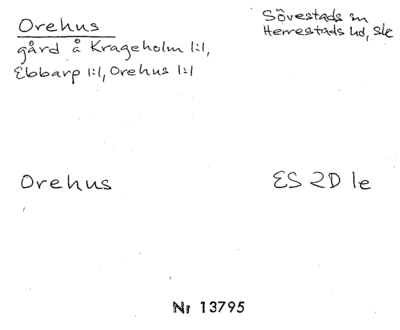 Orehus
gård å Krageholm 1:1,
Ebbarp 1:1, Orehus 1:1
Sövestads sn
Herrestads hd, Sk
Orehus
ES 2D 1e
Nr 13795